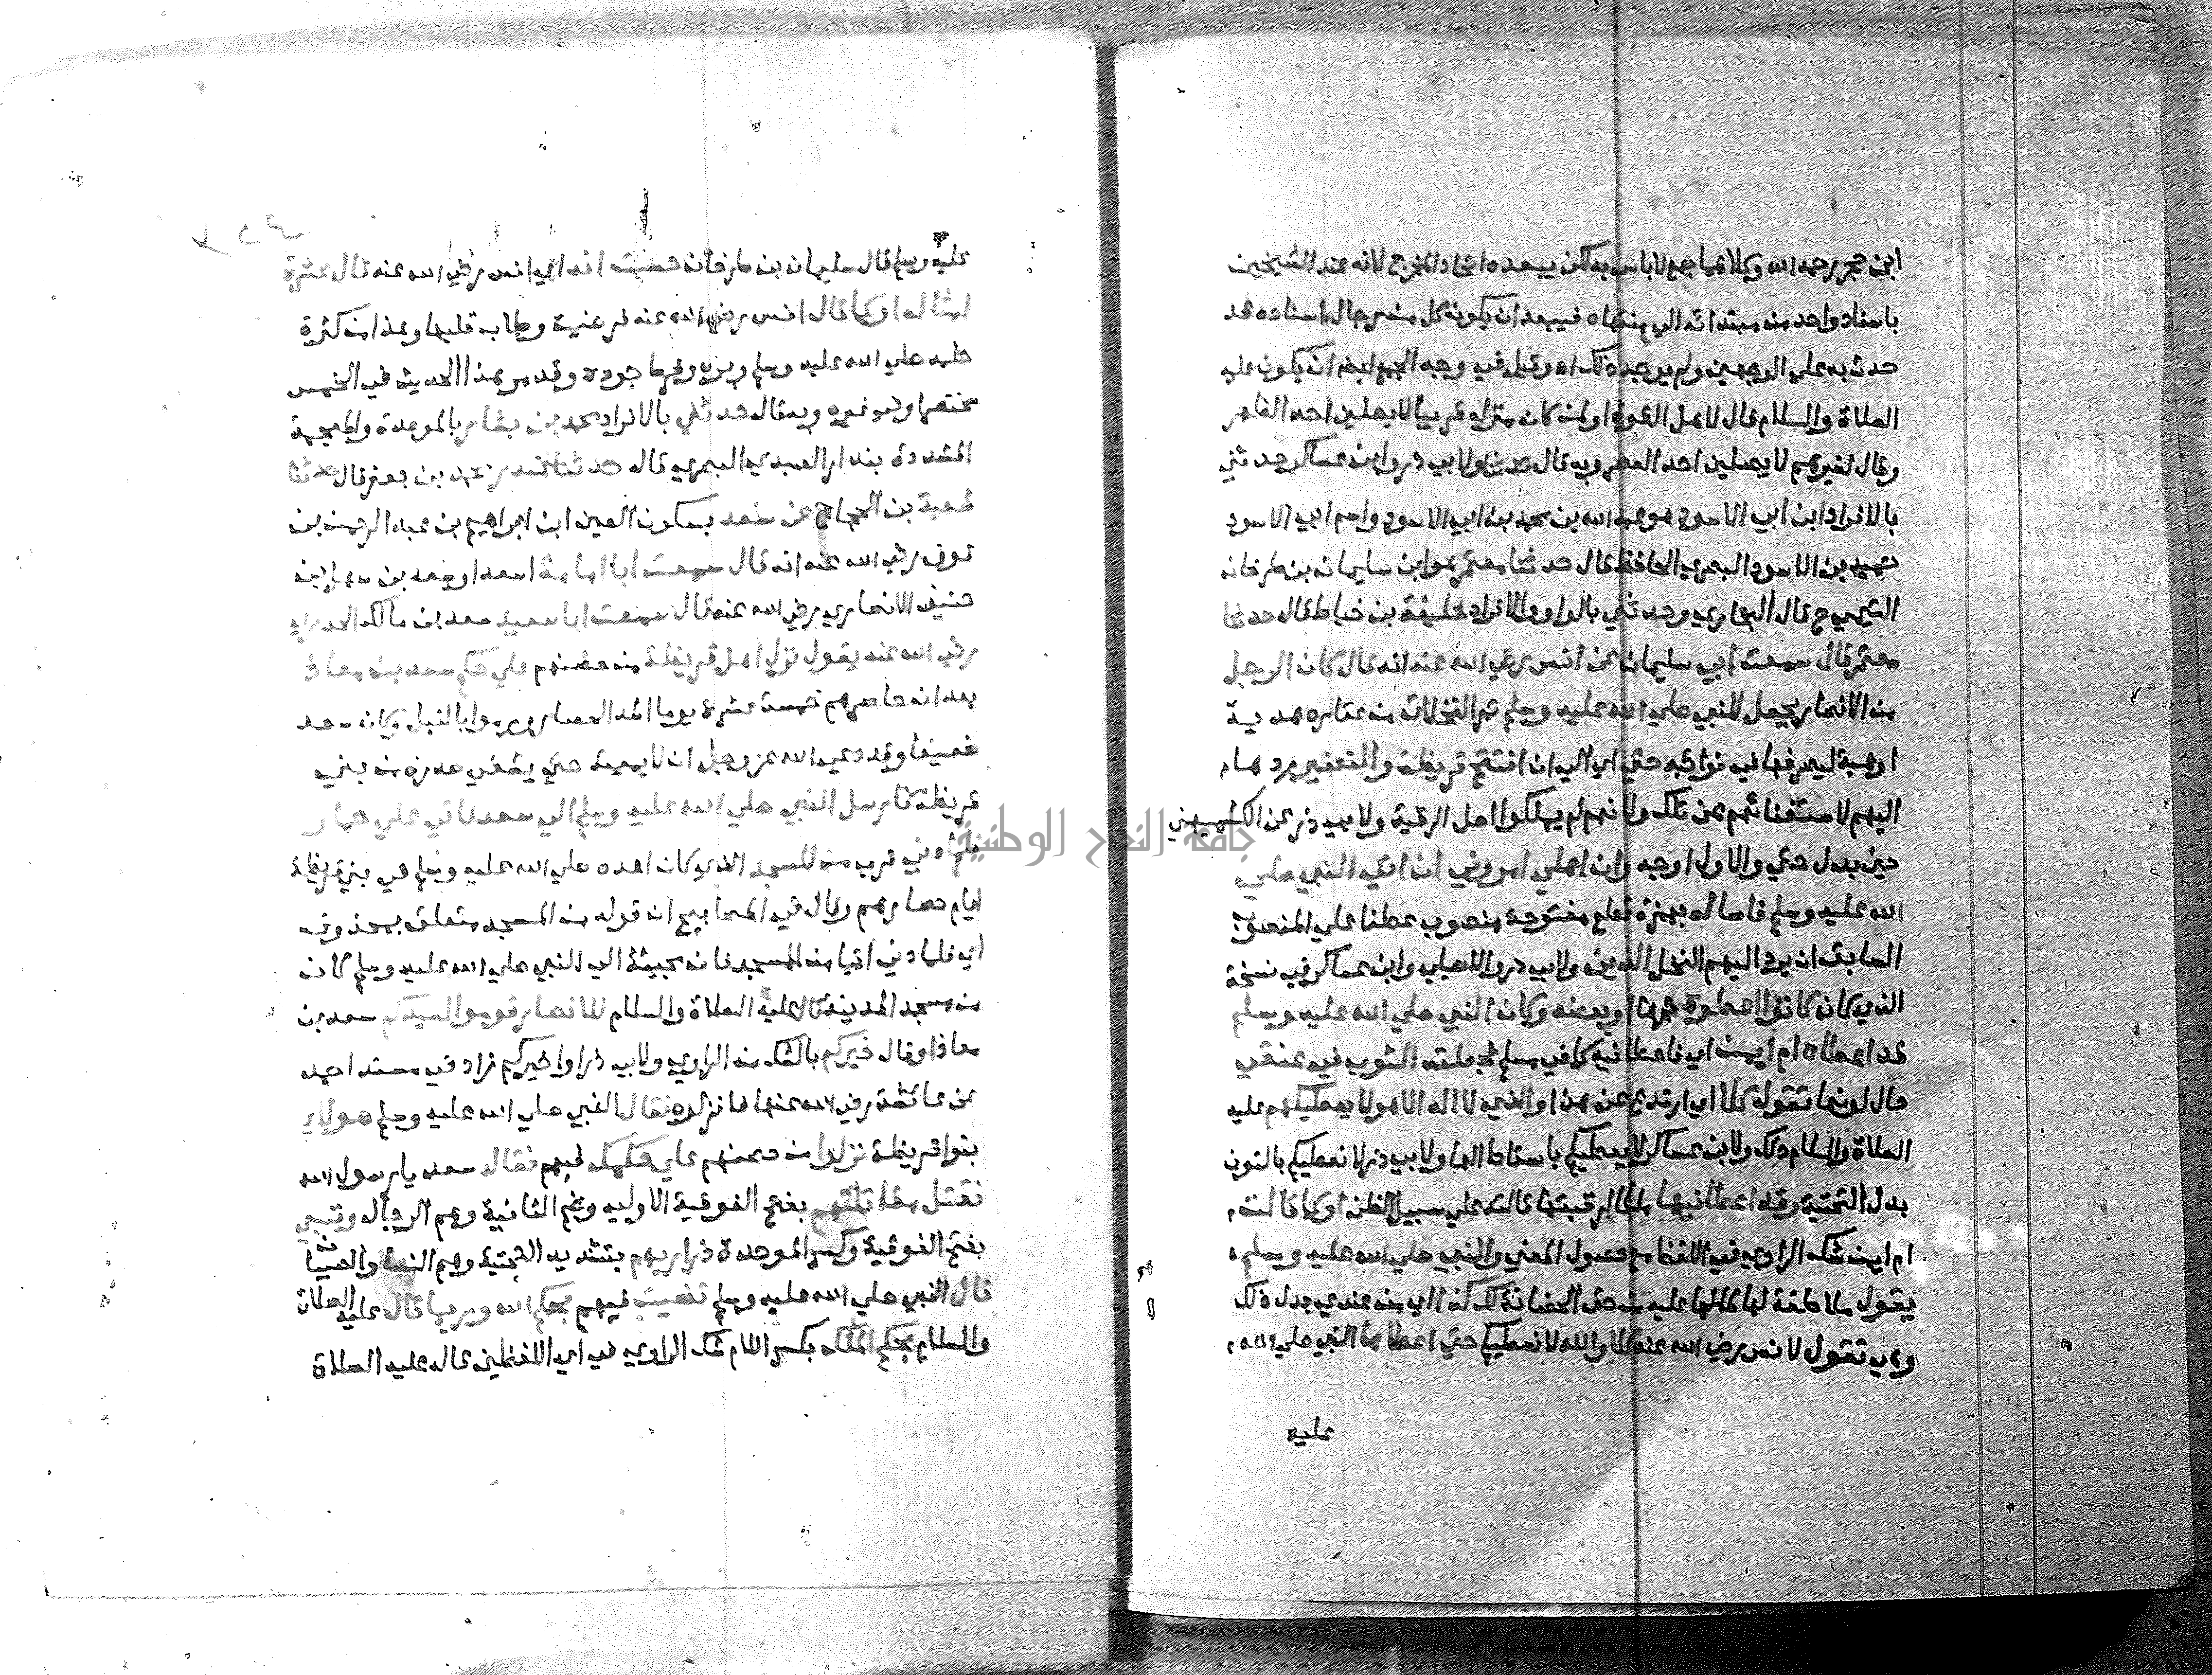 ابن حجر رحمه الله وكلاهما جمع لاباس به لكن يبعده اتحاد المخرج لانه عند الشيخين
باسناد واحد من مبتدائه الي منتهاه فيبعد ان يكون كل من رجال اسناده قد
حدث به علي الوجهين ولم يوجد ذلك اه وقيل في وجه الجمع ايضا ان يكون عليه
الصلاة والسلام قال لاهل القوة اولمن كان منزله قريبا لا يصلين احد الظهر
وقال لغيرهم لا يصلين احد العصر وبه قال حدثنا ولابي ذر وابن عساكر حدثني
بالافراد ابن ابي الاسود هو عبد الله بن محمد بن ابي الاسود واسم ابي الاسود
حميد بن الاسود البصري الحافظ قال حدثنا معتمر هو ابن سليمان بن طرخان
التيمي ح قال البخاري وحدثني بالواو والافراد خليفة بن خياط قال حدثنا
معتمر قال سمعت ابي سليمان عن انس رضي الله عنه انه قال كان الرجل
من الانصار يجعل للنبي صلي الله عليه وسلم ثمر النخلات من عقاره هدية
اوهبة ليصرفها في نوائبه حتي اي الي ان افتتح قريظة والنضير رد ها
اليهم لاستغنائهم عن تلك ولانهم لم يملكوا اصل الرقبة ولابي ذر عن الكشميهني
حين بدل حتي والاول اوجه وان اهلي امروني ان اتي النبي صلي
الله عليه وسلم فاساله بهمزة قطع مفتوحة منصوب عطفا علي المنصوب
السابق ان يرد اليهم النخل الذين ولابي ذر والاصيلي وابن عساكر في نسخة
الذي كان كانوا اعطوه ثمرها اوبعضه وكان النبي صلي الله عليه وسلم
قد اعطاه ام ايمن اي فاعطانيه كما في مسلم فجعلت الثوب في عنقي
حال لونها تقول كلا اي ارتدع عن هذا والذي لا اله الا هو لا يعطيكهم عليه
الصلاة والسلام ذلك ولابن عساكر لا يعطيكم باسقاط الها ولابي ذر لا نعطيكم بالنون
بدل التحتية وقد اعطانيها ملكا لرقبتها قالته علي سبيل الظن او كما قالت
ام ايمن شك الراوي في اللفظ مع حصول المعني والنبي صلي الله عليه وسلم
يقول ملاطفة لها لما لها عليه من حق الحضانة لك كذا اي من عندي بدل ذلك
وهي تقول لانس رضي الله عنه كلا والله لا نعطيكم حتي اعطاها النبي صلي الله
عليه
عليه وسلم قال سليمان بن طرخان حسبت انه اي انس رضي الله عنه قال عشرة
امثاله او كما قال انس رضي الله عنه فرضيت وطاب قلبها وهذا من كثرة
حلمه صلي الله عليه وسلم وبره وفرط جوده وقد مر هذا الحديث في الخمس
مختصرا وغيره وبه قال حدثني بالافراد محمد بن بشار بالموحدة والمعجمة
المشددة بندار العبدي البصري قال حدثنا غندر محمد بن جعفر قال حدثنا
شعبة بن الحجاج عن سعد بسكون العين ابن ابراهيم بن عبد الرحمن بن
عوف رضي الله عنه انه قال سمعت ابا امامة اسعد او سعد بن سهل بن
حنيف الانصاري رضي الله عنه قال سمعت ابا سعيد سعد بن مالك الخدري
رضي الله عنه يقول نزل اهل قريظة من حصنهم علي حكم سعد بن معاذ
بعد ان حاصرهم خمسة عشرة يوما اشد الحصار ورموا بالنبل وكان سعد
ضعيفا وقد دعي الله عز وجل ان لا يميته حتي يشفي صدره من بني
قريظة فارسل النبي صلي الله عليه وسلم الي سعد فاتي علي حمار
فلما دني قرب من المسجد الذي كان اعده صلي الله عليه وسلم في بني قريظة
ايام حصارهم وقال في المصابيح ان قوله من المسجد متعلق بمحذوف
اي فلما دني اتيا من المسجد فان مجيئه الي النبي صلي الله عليه وسلم كان
من مسجد المدينة قال عليه الصلاة والسلام للانصار قوموا لسيدكم سعد بن
معاذ او قال خيركم بالشك من الراوي ولابي ذر او اخيركم زاد في مسند احمد
عن عائشة رضي الله عنها فانزلوه فقال النبي صلي الله عليه وسلم هولاء
بنوا قريظة نزلوا من حصنهم علي حكمك فيهم فقال سعد يا رسول الله
نقتل مقاتلتهم بفتح الفوقية الاولي وضم الثانية وهم الرجال وتسبي
بفتح الفوقية وكسر الموحدة ذراريهم بتشديد التحتية وهم النساء والصبيان
قال النبي صلي الله عليه وسلم قضيت فيهم بحكم الله وربما قال عليه الصلاة
والسلام بحكم الملك بكسر اللام شك الراوي في اي اللفظين قال عليه الصلاة